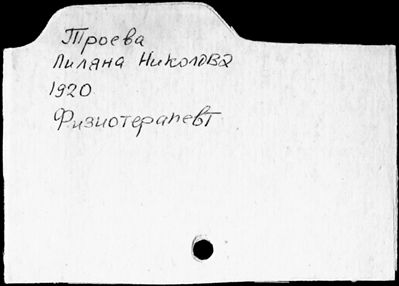 Троева
Лиляна Николова
1920
Физиотерапевт